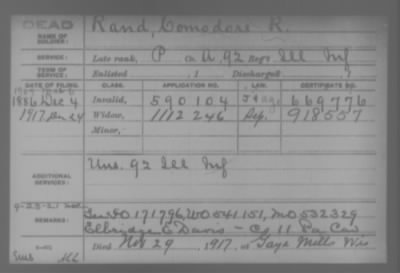 DEAD
NAME OF SOLDIER: Rand, Comodore R.
SERVICE: Late rank, P Co. A, 92 Reg't Ill Inf
TERM OF SERVICE: Enlisted , 1 Discharged , 1
DATE OF FILING. CLASS. APPLICATION NO. LAW. CERTIFICATE NO.
1886 Dec 4 Invalid, 590104 669776
1917 Dec 24 Widow, 1112246 918557
Minor,
ADDITIONAL SERVICES: Uns. 92 Ill Inf
REMARKS: 171796, WO 541151, MO 532329
Elbridge E Davis - Co 11 Pa Cav
Died Nov 29, 1917, at Gays Mills Wis